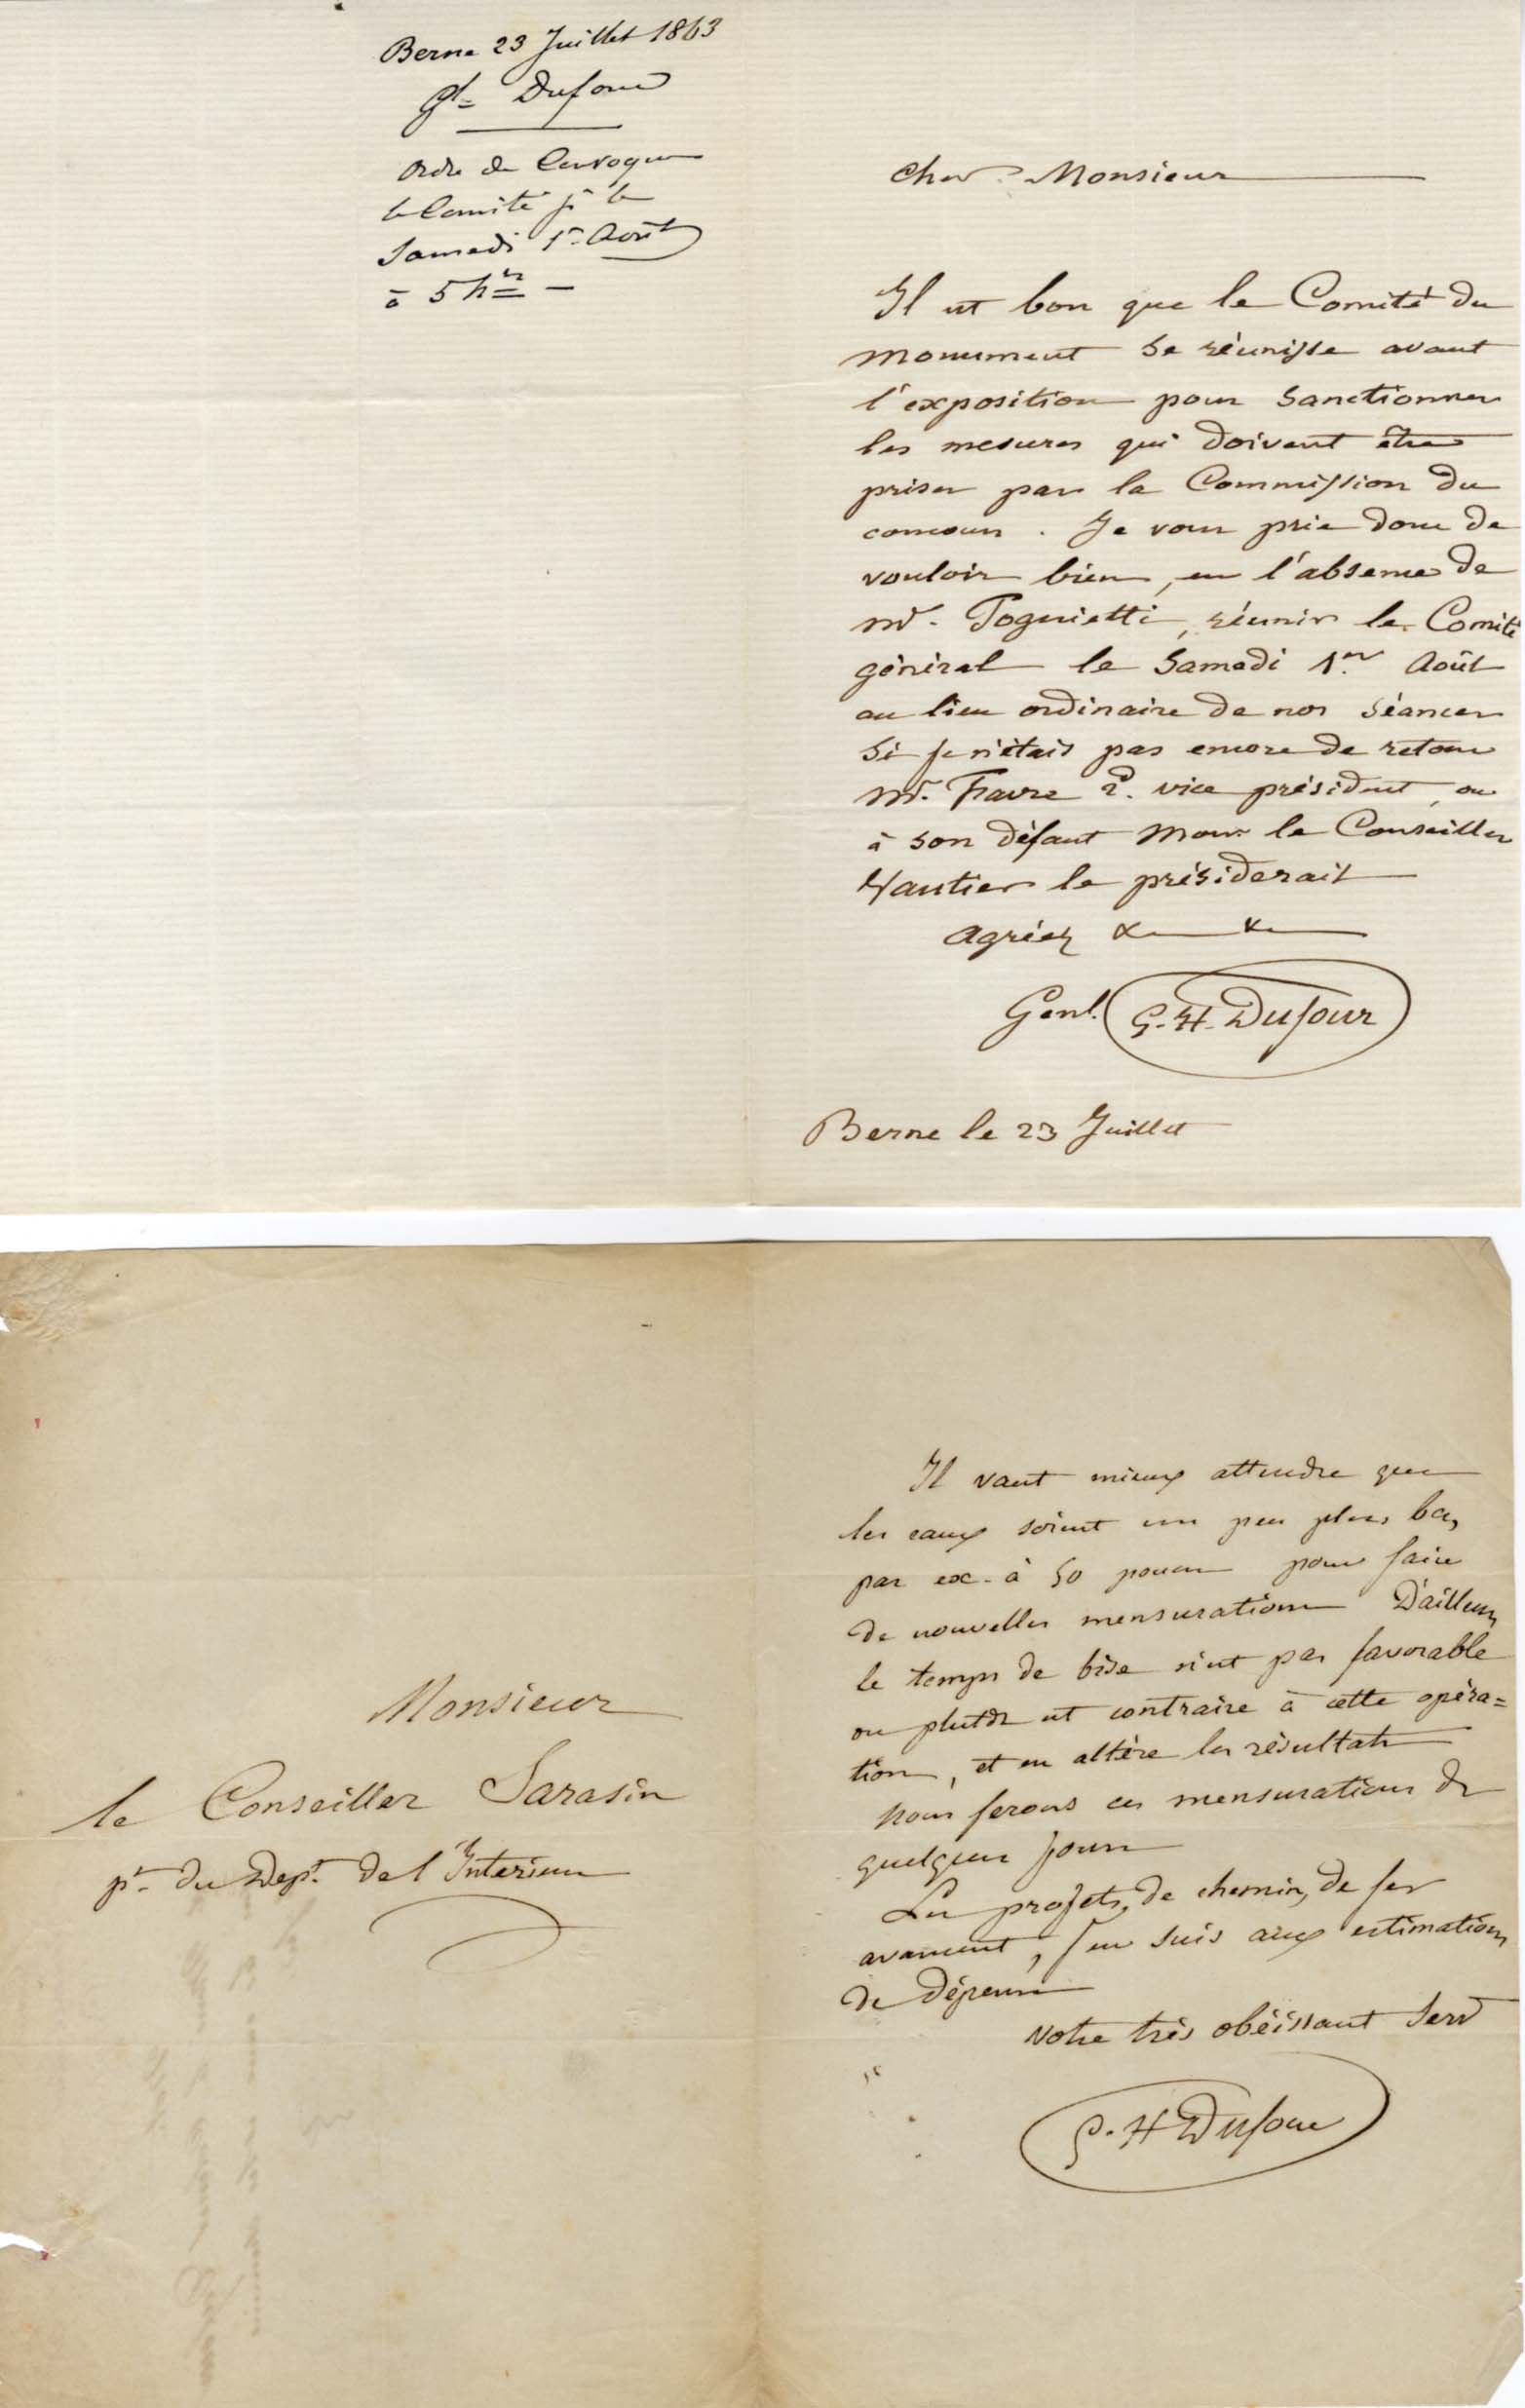 Berne 23 Juillet 1863
Gl= Dufour
Ordre de Convoquer
le Comité pr le
Samedi 1er Août
à 5 hres —
Cher Monsieur
Il est bon que le Comité du
monument se réunisse avant
l'exposition pour sanctionner
les mesures qui doivent être
prises par la Commission du
concours. Je vous prie donc de
vouloir bien, en l'absence de
Mr. Tognietti, réunir le Comité
général le Samedi 1er. Août
au lieu ordinaire de nos séances
Si je n'étais pas encore de retour
Mr. Favre 2d. vice président, ou
à son défaut Monr le Conseiller
Vautier le présiderait
Agréez &
Genl. G. H. Dufour
Berne le 23 Juillet
Monsieur
le Conseiller Sarasin
pt. du Dept. de l'Interieur
Il vaut mieux attendre que
les eaux soient un peu plus bas,
par ex. à 50 pouces pour faire
de nouvelles mensurations D'ailleurs
le temps de bise n'est pas favorable
ou plutôt est contraire à cette opéra=
tion, et en altère les résultats
Nous ferons ces mensurations ds
quelques jours
Les projets de chemins de fer
avancent, j'en suis aux estimations
de dépenses
Votre très obéissant Servr
G. H Dufour